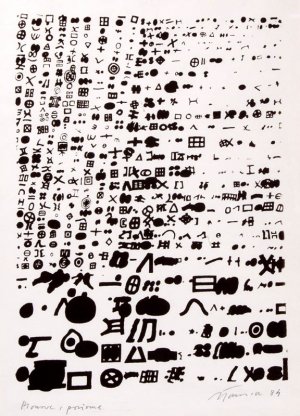 Pionowe i poziome
84